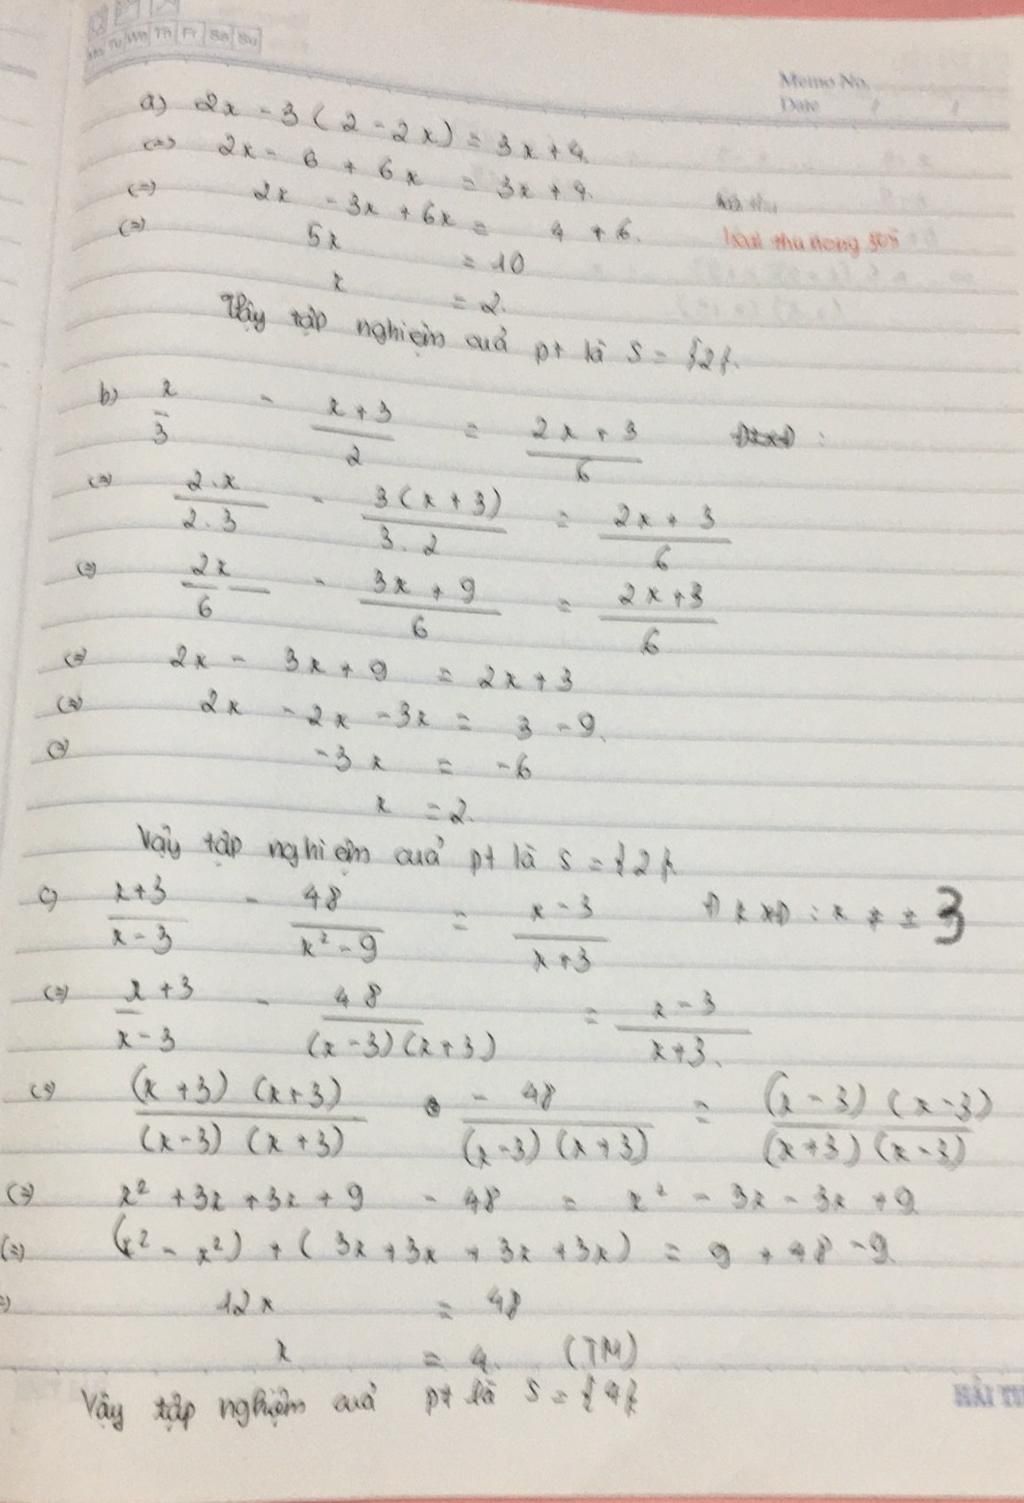 Mo Tu We Th Fr Sa Su
Memo No.
Date / /
a) 2x - 3(2 - 2x) = 3x + 4
<=> 2x - 6 + 6x = 3x + 4.
<=> 2x - 3x + 6x = 4 + 6.
<=> 5x = 10
x = 2.
Vậy tập nghiệm quả pt là S = {2}.
b) x/3 - (x + 3)/2 = (2x + 3)/6
<=> (2.x)/(2.3) - (3(x + 3))/(3.2) = (2x + 3)/6
<=> 2x/6 - (3x + 9)/6 = (2x + 3)/6
<=> 2x - 3x + 9 = 2x + 3
<=> 2x - 2x - 3x = 3 - 9.
<=> -3x = -6
x = 2.
Vậy tập nghiệm quả pt là S = {2}
c) (x + 3)/(x - 3) - 48/(x² - 9) = (x - 3)/(x + 3) ĐKXĐ : x ≠ ± 3
<=> (x + 3)/(x - 3) - 48/((x - 3)(x + 3)) = (x - 3)/(x + 3)
<=> ((x + 3)(x + 3))/((x - 3)(x + 3)) - 48/((x - 3)(x + 3)) = ((x - 3)(x - 3))/((x + 3)(x - 3))
<=> x² + 3x + 3x + 9 - 48 = x² - 3x - 3x + 9
<=> (x² - x²) + (3x + 3x + 3x + 3x) = 9 + 48 - 9
=> 12x = 48
x = 4. (TM)
Vậy tập nghiệm quả pt là S = {4}
HẢI